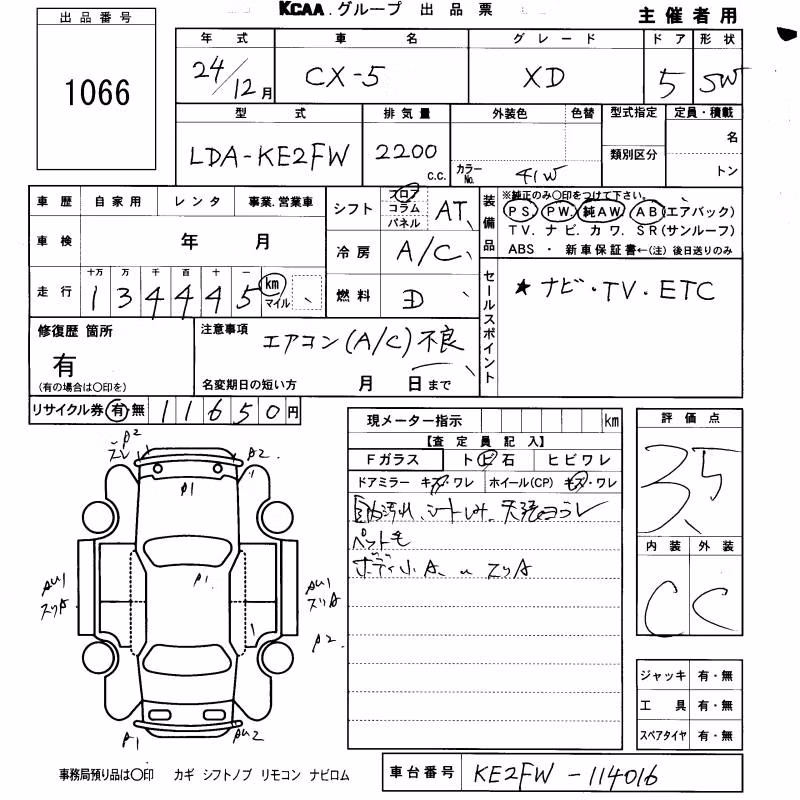 KCAA.グループ 出品票
主催者用
出品番号
1066
年式 車名 グレード ドア 形状
24/12月 CX-5 XD 5 SW
型式 排気量 外装色 色替 型式指定 定員・積載
LDA-KE2FW 2200 c.c. カラーNo. 41W 類別区分 名
トン
車歴 自家用 レンタ 事業.営業車
車検 年 月
十万 万 千 百 十 一
走行 1 3 4 4 4 5 km マイル
シフト フロア コラム パネル AT
冷房 A/C
燃料 D
装備品
※純正のみ○印をつけて下さい。
PS. PW. 純AW. AB(エアバック)
TV. ナビ. カワ. SR(サンルーフ)
ABS ・ 新車保証書←(注) 後日送りのみ
セールスポイント
★ナビ・TV・ETC
修復歴 箇所
有
(有の場合は○印を)
注意事項
エアコン(A/C)不良
名変期日の短い方 月 日まで
リサイクル券 有 無 11650円
現メーター指示 km
【査定員記入】
Fガラス トビ石 ヒビワレ
ドアミラー キズ・ワレ ホイール(CP) キズ・ワレ
ペット毛
ボディ小A、
評価点
3.5
内装 外装
C C
A2
A2
A1
A1
AU1
スリA
AU1
スリA
A2
A1
AU2
ジャッキ 有・無
工具 有・無
スペアタイヤ 有・無
事務局預り品は○印 カギ シフトノブ リモコン ナビロム
車台番号 KE2FW-114016